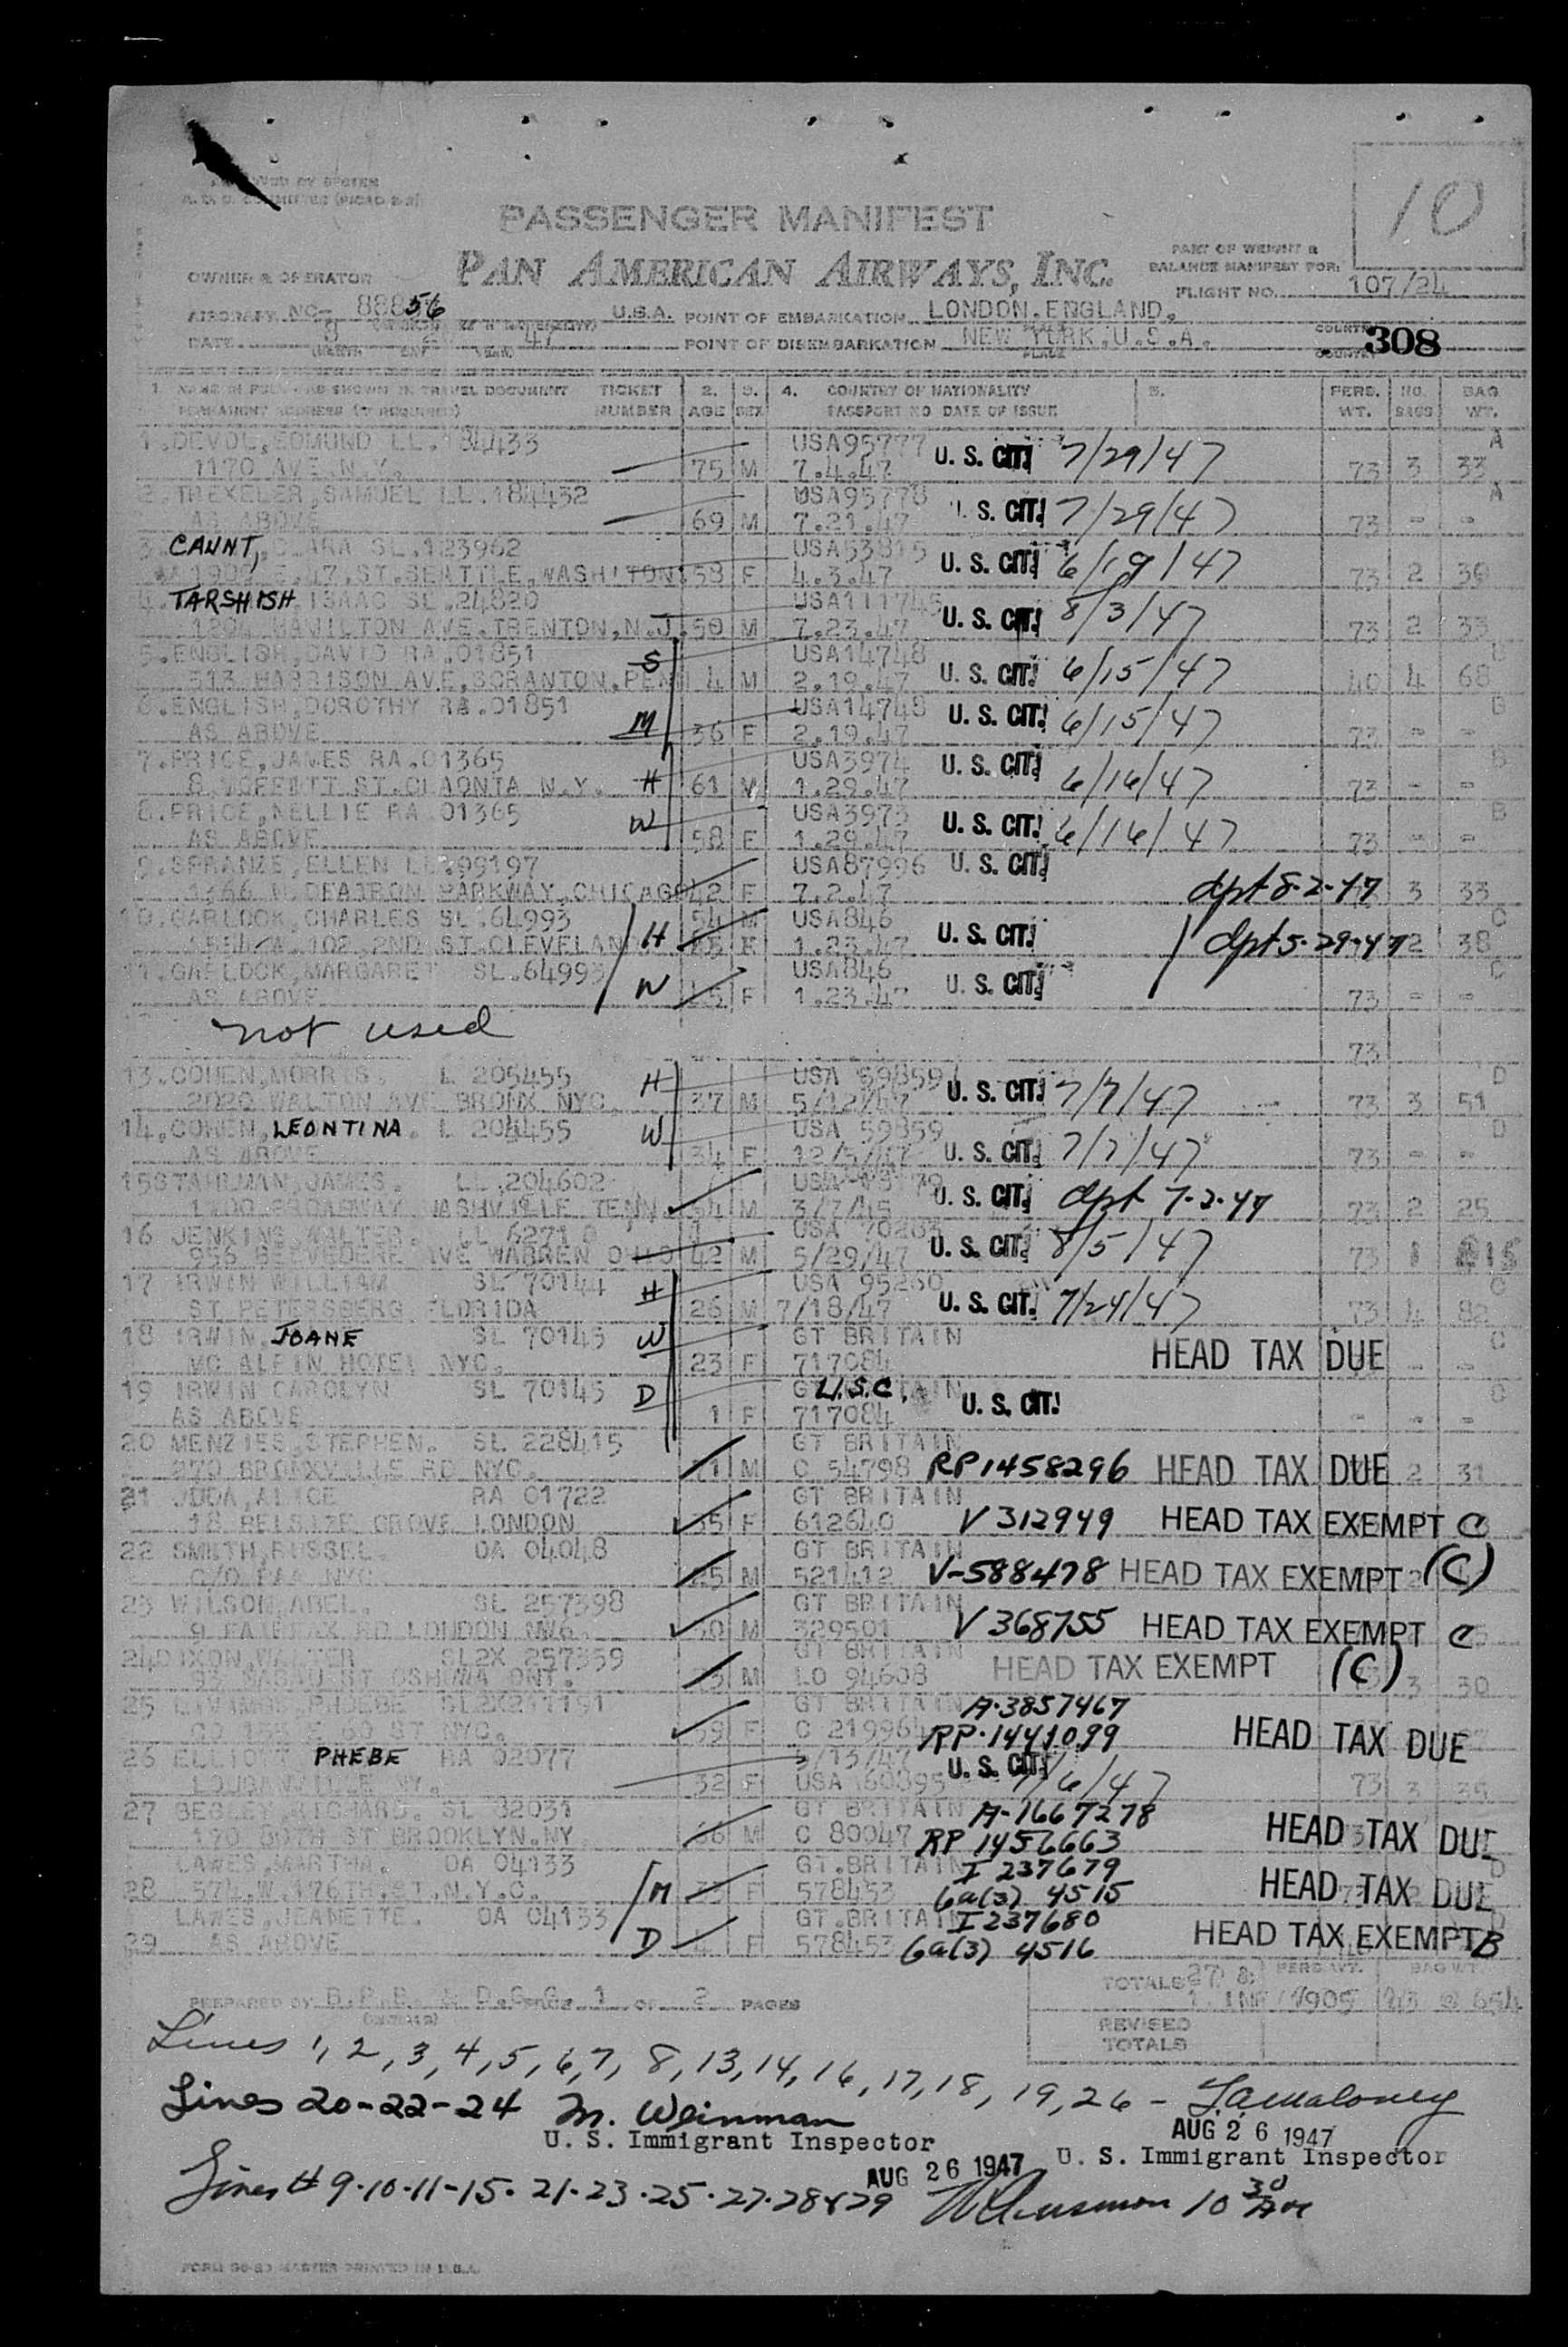 10
PASSENGER MANIFEST
PAN AMERICAN AIRWAYS, INC.
PART OF WEIGHT &
BALANCE MANIFEST FOR:
OWNER & OPERATOR
FLIGHT NO. 107/24
AIRCRAFT NC- 88856 U.S.A. POINT OF EMBARKATION LONDON.ENGLAND.
DATE 47 POINT OF DISEMBARKATION NEW YORK.U.S.A. 308
1. NAME IN FULL AS SHOWN IN TRAVEL DOCUMENT TICKET 2. 3. 4. COUNTRY OF NATIONALITY 5. PERS. NO. BAG
PERMANENT ADDRESS (IF REQUIRED) NUMBER AGE SEX PASSPORT NO DATE OF ISSUE WT. BAGS WT.
1.DEVOL,EDMUND LL.184433 USA95777 U. S. CIT. 7/29/47 A
1170 AVE.N.Y. 75 M 7.4.47 73 3 33
2.TREXELER,SAMUEL LL.184432 USA95778 U. S. CIT. 7/29/47 A
AS ABOVE 69 M 7.21.47 73 - -
3. CAUNT, CLARA SL.123962 USA53815 U. S. CIT. 6/19/47
1909 E.47.ST.SEATTLE,WASHITON 58 F 4.3.47 73 2 30
4. TARSHISH, ISAAC SL.24820 USA111745 U. S. CIT. 8/3/47
HAMILTON AVE.TRENTON,N.J. 50 M 7.23.47 73 2 33
5.ENGLISH,DAVID RA.01851 S USA14748 U. S. CIT. 6/15/47
513 HARRISON AVE,SCRANTON,PEN 4 M 2.19.47 40 4 68
6.ENGLISH,DOROTHY RA.01851 M USA14748 U. S. CIT. 6/15/47 B
AS ABOVE 36 F 2.19.47 73 - -
7.PRICE,JAMES RA.01365 H USA3974 U. S. CIT. 6/16/47 B
ST. N.Y. 61 M 1.29.47 73 - -
8.PRICE,NELLIE RA 01365 W USA3973 U. S. CIT. 6/16/47 B
AS ABOVE 58 F 1.29.47 73 - -
9. ELLEN LL.99197 USA87996 U. S. CIT.
PARKWAY,CHICAGO 42 F 7.2.47 dpt 8-2-47 3 33
10.GARLOCK,CHARLES SL.64993 H 54 M USA846 U. S. CIT. dpt 5-29-47 C
102.2ND ST.CLEVELAN 1.23.47 2 38
11.GARLOCK,MARGARET SL.64993 W USA846 U. S. CIT. C
AS ABOVE F 1.23.47 73 - -
not used
73
13.COHEN,MORRIS. L 205455 H USA 59859 U. S. CIT. 7/7/47 D
2020 WALTON AVE BRONX NYC. 37 M 5/12/47 73 3 51
14.COHEN, LEONTINA. L 204455 W USA 59859 U. S. CIT. 7/7/47 D
AS ABOVE 34 F 12/5/47 73 - -
15STAHLMAN,JAMES. LL.204602 USA U. S. CIT. dpt 7-2-47
1100 BROADWAY NASHVILLE TENN. 54 M 3/7/45 73 2 25
16 JENKINS,WALTER. LL 6271 USA 70283 U. S. CIT. 8/5/47
956 BELVEDERE AVE WARREN OHIO 42 M 5/29/47 73 1 15
17 IRWIN WILLIAM SL 70144 H USA 95260 U. S. CIT. 7/24/47 C
ST PETERSBERG FLORIDA 26 M 7/18/47 73 4 82
18 IRWIN JOANE SL 70145 W GT BRITAIN HEAD TAX DUE C
MC ALPIN HOTEL NYC. 23 F 717084 - -
19 IRWIN CAROLYN SL 70145 D GT BRITAIN U.S.C. U. S. CIT. C
AS ABOVE 1 F 717084 - - -
20 MENZIES,STEPHEN. SL 228415 GT BRITAIN
270 BRONXVILLE RD NYC. M C 54798 RP1458296 HEAD TAX DUE 2 31
21 JUDA,ALICE RA 01722 GT BRITAIN
18 BELSIZE GROVE LONDON 35 F 612640 V 312949 HEAD TAX EXEMPT C
22 SMITH,RUSSEL. OA 04048 GT BRITAIN
C/O PAA NYC 25 M 521412 V-588478 HEAD TAX EXEMPT (C)
23 WILSON,ABEL. SL 257398 GT BRITAIN
9 FAIRFAX RD LONDON NW6. M 329501 V 368755 HEAD TAX EXEMPT C
24DIXON,WALTER SL2X 257359 GT BRITAIN HEAD TAX EXEMPT (C)
ONT. M LO 94608 3 30
25 PHOEBE SL2X GT BRITAIN A-3857467
NYC. 59 F C 21996 RP-1441099 HEAD TAX DUE
26 ELLIOTT PHEBE RA 02077 /13/47 U. S. CIT. /6/47
NY. 32 F USA 60895 73 3 35
27 BEGLEY RICHARD. SL 82031 GT BRITAIN A-1667278
170 80TH ST BROOKLYN.NY 66 M C 80047 RP 1456663 HEAD TAX DUE
LAWES,MARTHA. OA 04133 M GT.BRITAIN I 237679
28 574.W.176TH.ST.N.Y.C. 33 F 578453 6a(3) 4515 HEAD TAX DUE D
LAWES,JEANETTE. OA 04133 GT.BRITAIN I 237680
29 AS ABOVE D 4 F 578453 6a(3) 4516 HEAD TAX EXEMPT B
TOTALS 27 & PERS WT. BAG WT.
PREPARED BY PAGE 1 OF 2 PAGES 1 INF 1905 654
REVISED
TOTALS
Lines 1, 2, 3, 4, 5, 6, 7, 8, 13, 14, 16, 17, 18, 19, 26 -
Lines 20-22-24 M. Weinman
AUG 26 1947
U. S. Immigrant Inspector
U. S. Immigrant Inspector
AUG 26 1947
Lines # 9-10-11-15-21-23-25-27-28&29 10 30 AM